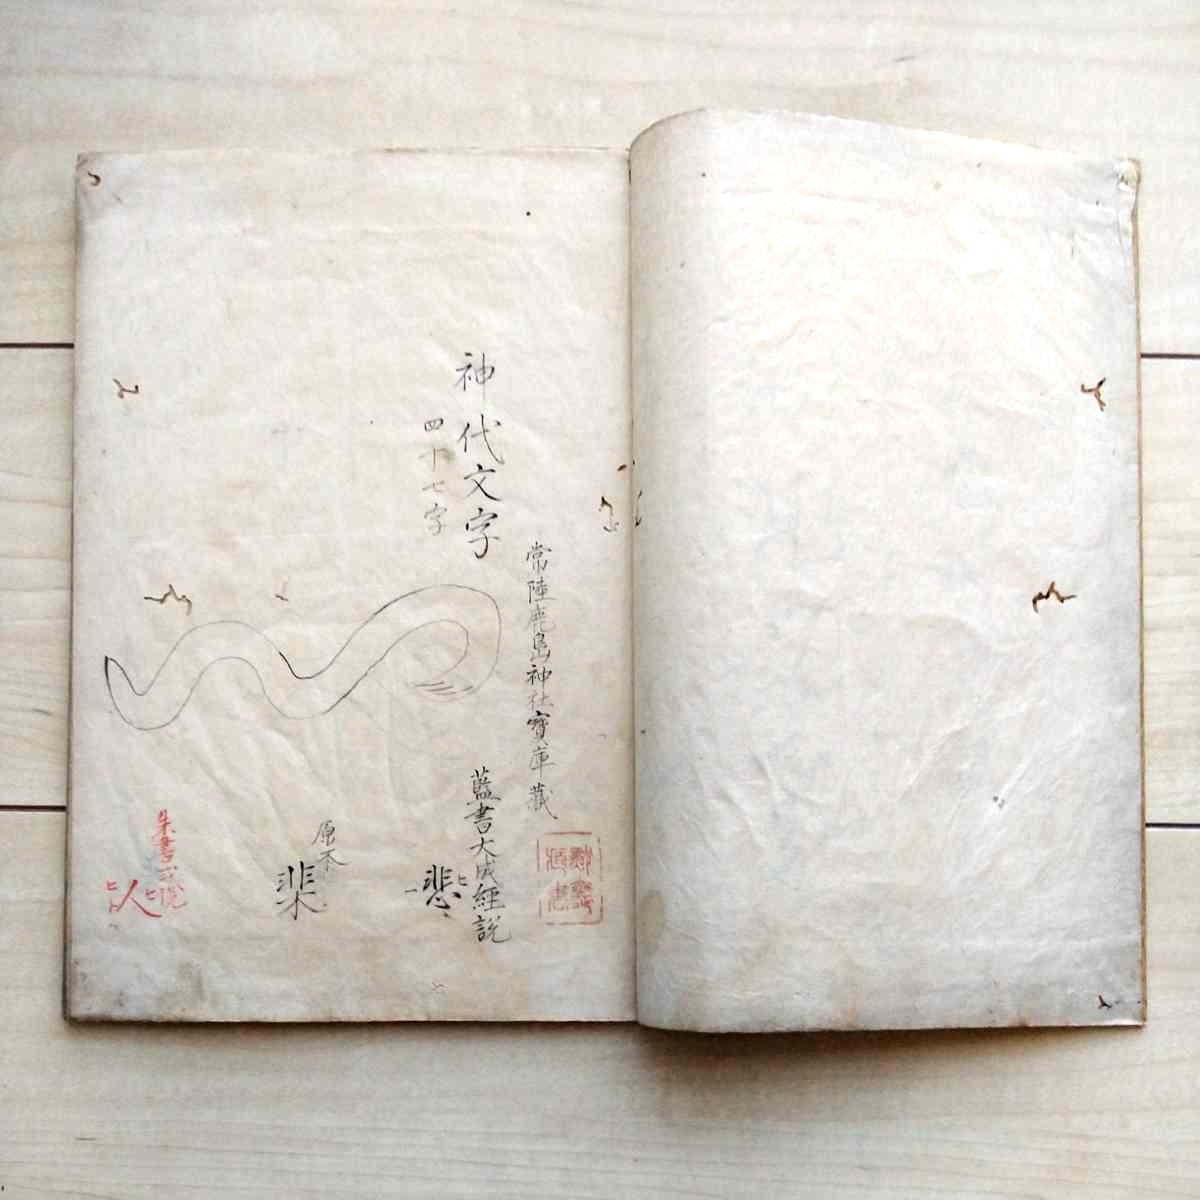 常陸鹿島神社寶庫藏
神代文字
四十七字
藍書大成經說
悲
原本
朱書